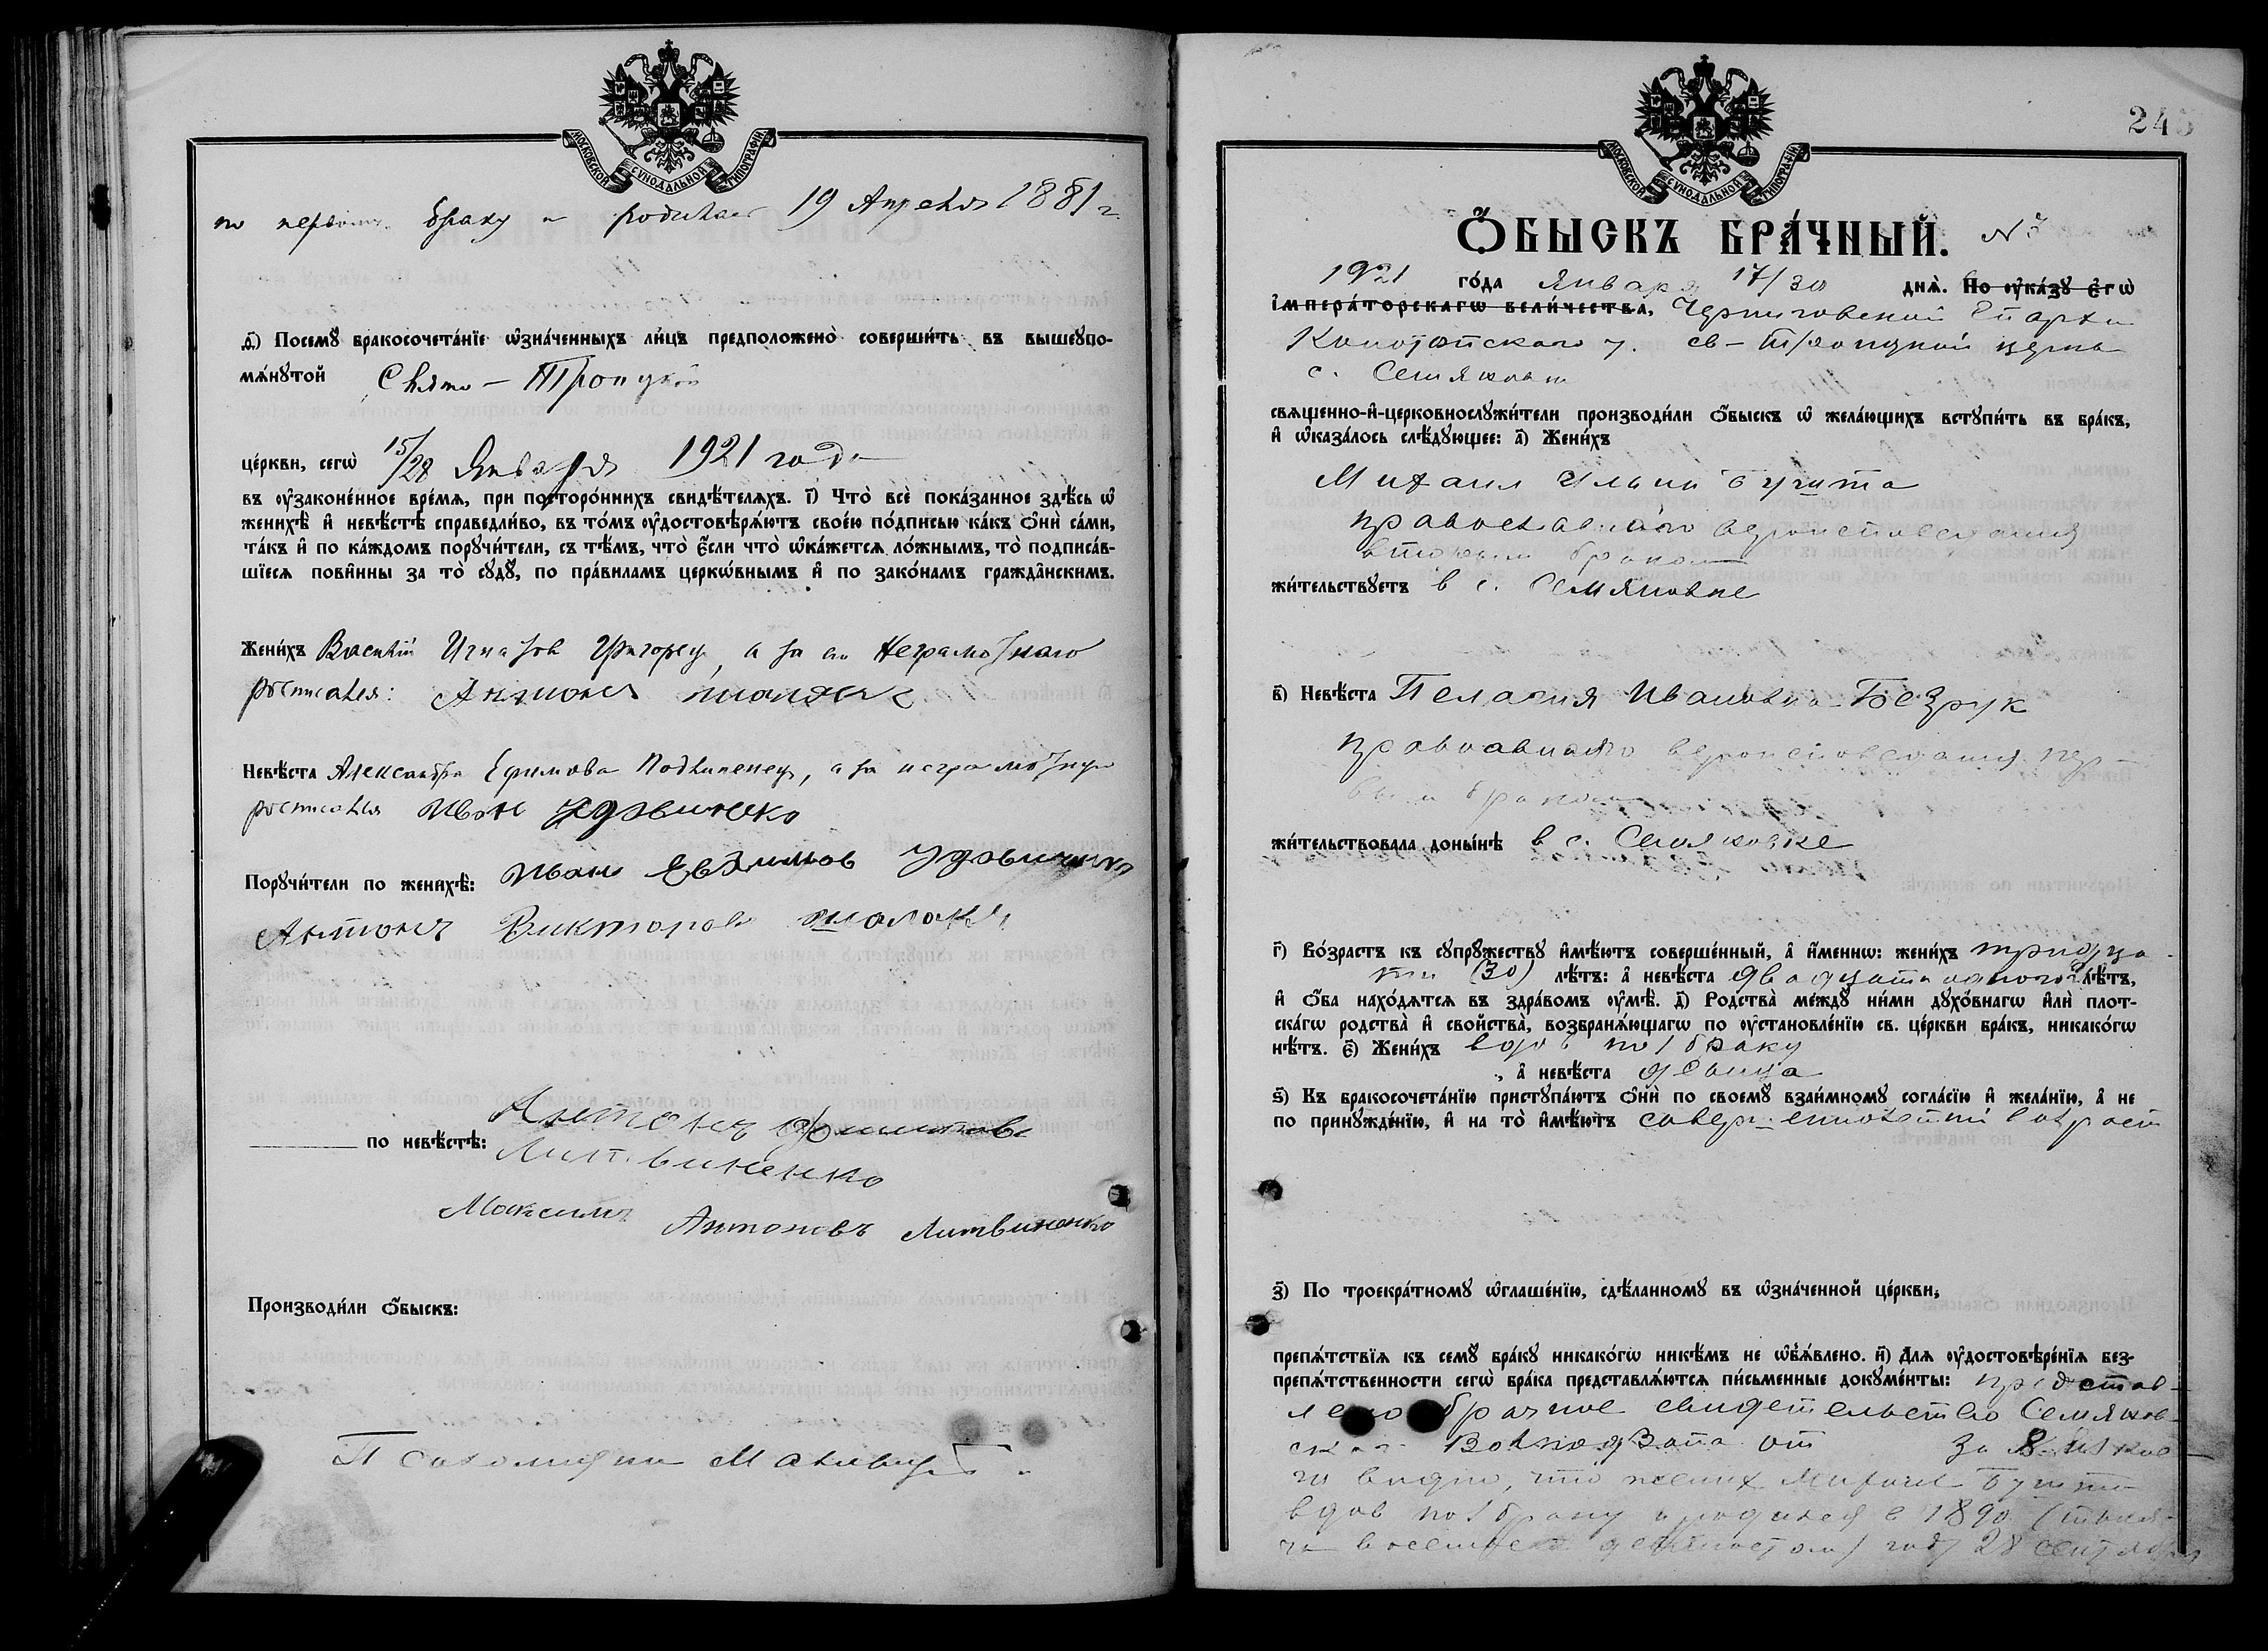 МОСКОВСКОЙ СѴНОДАЛЬНОЙ ТИПОГРАФІИ
по первому браку и родилась 19 Апреля 1881 г.
д҃і) Посемꙋ̀ бракосочета́нїе ѡ҆зна́ченныхъ ли́цъ предположено̀ соверши́ть въ вышеꙋпо-
мѧ́нꙋтой Свято-Троицкой
це́ркви, сегѡ̀ 15/28 Января 1921 года
въ ᲂу҆законе́нное вре́мѧ, при посторо́ннихъ свидѣ́телѧхъ. і҃) Что̀ всѐ пока́занное здѣ́сь ѡ҆
женихѣ̀ и҆ невѣ́стѣ справедли́во, въ то́мъ ᲂу҆достовѣрѧ́ютъ свое́ю по́дписью ка́къ ѻ҆нѝ са́ми,
та́къ и҆ по ка́ждомъ порꙋчи́тели, съ тѣ́мъ, что̀ є҆́сли что̀ ѡ҆ка́жетсѧ ло́жнымъ, то̀ подписа́в-
шїесѧ пови́нны за то̀ сꙋдꙋ̀, по пра́виламъ церко́внымъ и҆ по зако́намъ гражда́нскимъ.
Жени́хъ Василий Игнатов Григорец, а за его Неграмотного
росписался: Антонъ
Невѣ́ста Александра Ефимова Подлипенец, а за неграмотную
росписался Иван Удовиченко
Порꙋчи́тели по женихѣ̀: Иван Евфимов Удовиченко
Антонъ Викторов
по невѣ́стѣ: Антонъ
Литвиненко
Максимъ Антоновъ Литвиненко
Производи́ли ѻ҆́быскъ:
Псаломщик
МОСКОВСКОЙ СѴНОДАЛЬНОЙ ТИПОГРАФІИ
245
Ѻ҆́БЫСКЪ БРА́ЧНЫЙ. № 3
1921 го́да Января 17/30 днѧ̀. По ᲂу҆ка́зꙋ є҆гѡ̀
і҆мпера́торскагѡ вели́чества, Черниговской Епархии
Конотопского у. св-Троицкой церкви
с. Семяновки
свѧще́нно-и҆-церковнослꙋжи́тели производи́ли ѻ҆́быскъ ѡ҆ жела́ющихъ встꙋпи́ть въ бра́къ,
и҆ ѡ҆каза́лось слѣ́дꙋющее: а҃) Жени́хъ
Михаил Ильин Бушта
православного вероисповедания
вторым браком
жи́тельствꙋетъ в с. Семяновке
в҃) Невѣ́ста Пелагия Ивановна Безрук
православного вероисповедания пер-
вым браком
жи́тельствовала доны́нѣ в с. Семяновке
г҃) Во́зрастъ къ сꙋпрꙋ́жествꙋ и҆мѣ́ютъ соверше́нный, а҆ и҆́меннѡ: жени́хъ тридца-
ти (30) лѣ́тъ: а҆ невѣ́ста двадцати одного лѣ́тъ,
и҆ ѻ҆́ба нахо́дѧтсѧ въ здра́вомъ ᲂу҆мѣ̀. д҃) Родства̀ ме́ждꙋ ни́ми дꙋхо́внагѡ и҆лѝ плот-
ска́гѡ родства̀ и҆ свойства̀, возбранѧ́ющагѡ по ᲂу҆становле́нїю св. це́ркви бра́къ, никако́гѡ
нѣ́тъ. є҃) Жени́хъ вдов по 1 браку
, а҆ невѣ́ста девица
ѕ҃) Къ бракосочета́нїю пристꙋпа́ютъ ѻ҆нѝ по своемꙋ̀ взаи́мномꙋ согла́сїю и҆ жела́нїю, а҆ не
по принꙋжде́нїю, и҆ на то̀ и҆мѣ́ютъ совершеннолетний возраст
з҃) По троекра́тномꙋ ѡ҆глаше́нїю, сдѣ́ланномꙋ въ ѡ҆зна́ченной це́ркви,
препѧ́тствїѧ къ семꙋ̀ бра́кꙋ никако́гѡ никѣ́мъ не ѡ҆б̾ѧ́влено. и҃) Длѧ ᲂу҆достовѣре́нїѧ без-
препѧ́тственности сегѡ̀ бра́ка представлѧ́ютсѧ пи́сьменные докꙋме́нты: представ-
лено брачное свидетельство Семянов-
ского от за №
го видно, что жених Михаил Бушта
вдов по 1 браку и родился в 1890 (тыся-
ча восемьсот девяностом) году 28 сентября